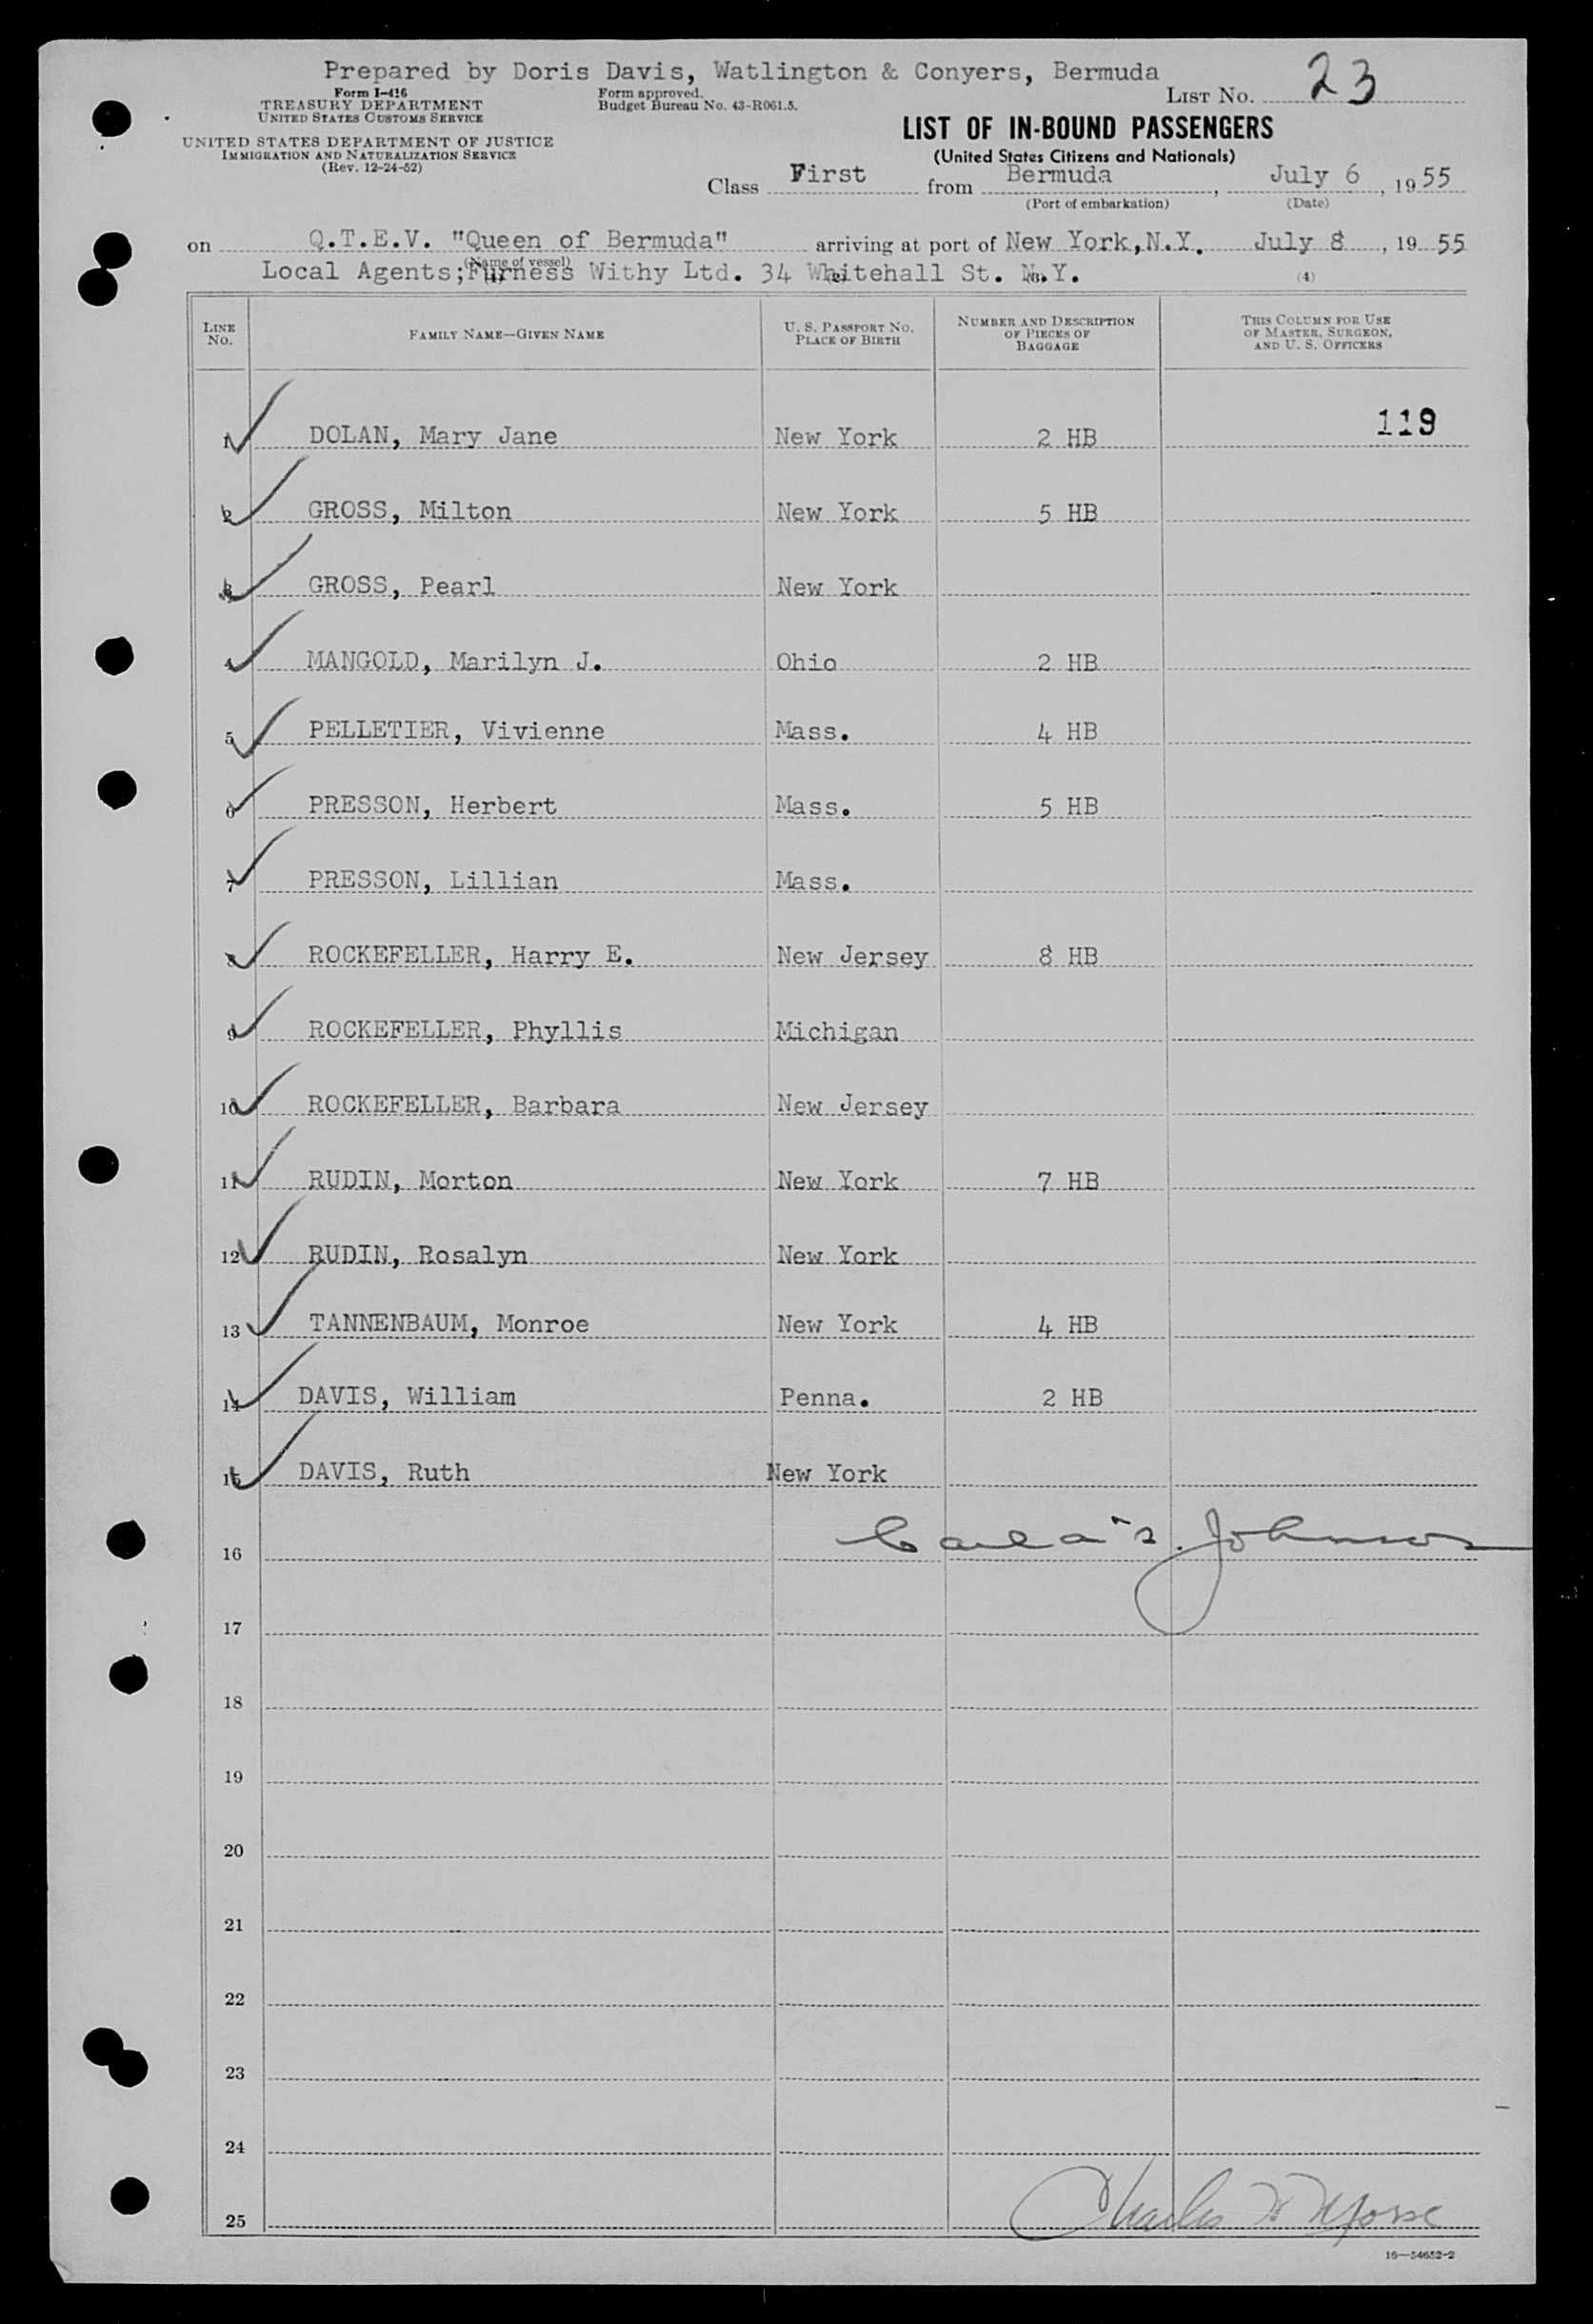 Prepared by Doris Davis, Watlington & Conyers, Bermuda
Form I-416
TREASURY DEPARTMENT
UNITED STATES CUSTOMS SERVICE
UNITED STATES DEPARTMENT OF JUSTICE
IMMIGRATION AND NATURALIZATION SERVICE
(Rev. 12-24-52)
Form approved.
Budget Bureau No. 43-R061.5.
LIST NO. 23
LIST OF IN-BOUND PASSENGERS
(United States Citizens and Nationals)
Class First from Bermuda, July 6, 1955
(Port of embarkation) (Date)
on Q.T.E.V. "Queen of Bermuda" arriving at port of New York, N.Y. July 8, 1955
(Name of vessel)
Local Agents; Furness Withy Ltd. 34 Whitehall St. N.Y.
(1) (2) (3) (4)
LINE NO. FAMILY NAME—GIVEN NAME U. S. PASSPORT NO. PLACE OF BIRTH NUMBER AND DESCRIPTION OF PIECES OF BAGGAGE THIS COLUMN FOR USE OF MASTER, SURGEON, AND U. S. OFFICERS
1 DOLAN, Mary Jane New York 2 HB 119
2 GROSS, Milton New York 5 HB
3 GROSS, Pearl New York
4 MANGOLD, Marilyn J. Ohio 2 HB
5 PELLETIER, Vivienne Mass. 4 HB
6 PRESSON, Herbert Mass. 5 HB
7 PRESSON, Lillian Mass.
8 ROCKEFELLER, Harry E. New Jersey 8 HB
9 ROCKEFELLER, Phyllis Michigan
10 ROCKEFELLER, Barbara New Jersey
11 RUDIN, Morton New York 7 HB
12 RUDIN, Rosalyn New York
13 TANNENBAUM, Monroe New York 4 HB
14 DAVIS, William Penna. 2 HB
15 DAVIS, Ruth New York
16 Johnson
17
18
19
20
21
22
23
24
25 Charles H Morse
16—54652-2